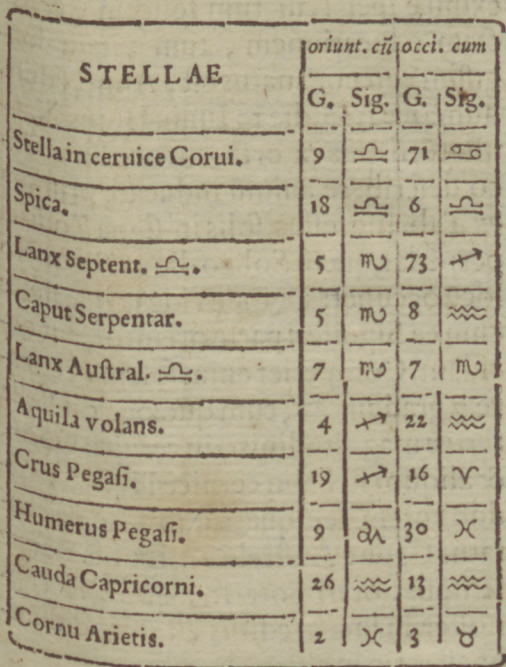 STELLAE oriunt. cũ occi. cum
G. Sig. G. Sig.
Stella in ceruice Corui. 9 ♎ 71 ♋
Spica. 18 ♎ 6 ♎
Lanx Septent. ♎. 5 ♏ 73 ♐
Caput Serpentar. 5 ♏ 8 ♒
Lanx Auſtral. ♎. 7 ♏ 7 ♏
Aquila volans. 4 ♐ 22 ♒
Crus Pegaſi. 19 ♐ 16 ♈
Humerus Pegaſi. 9 ♑ 30 ♓
Cauda Capricorni. 26 ♒ 13 ♒
Cornu Arietis. 2 ♓ 3 ♉